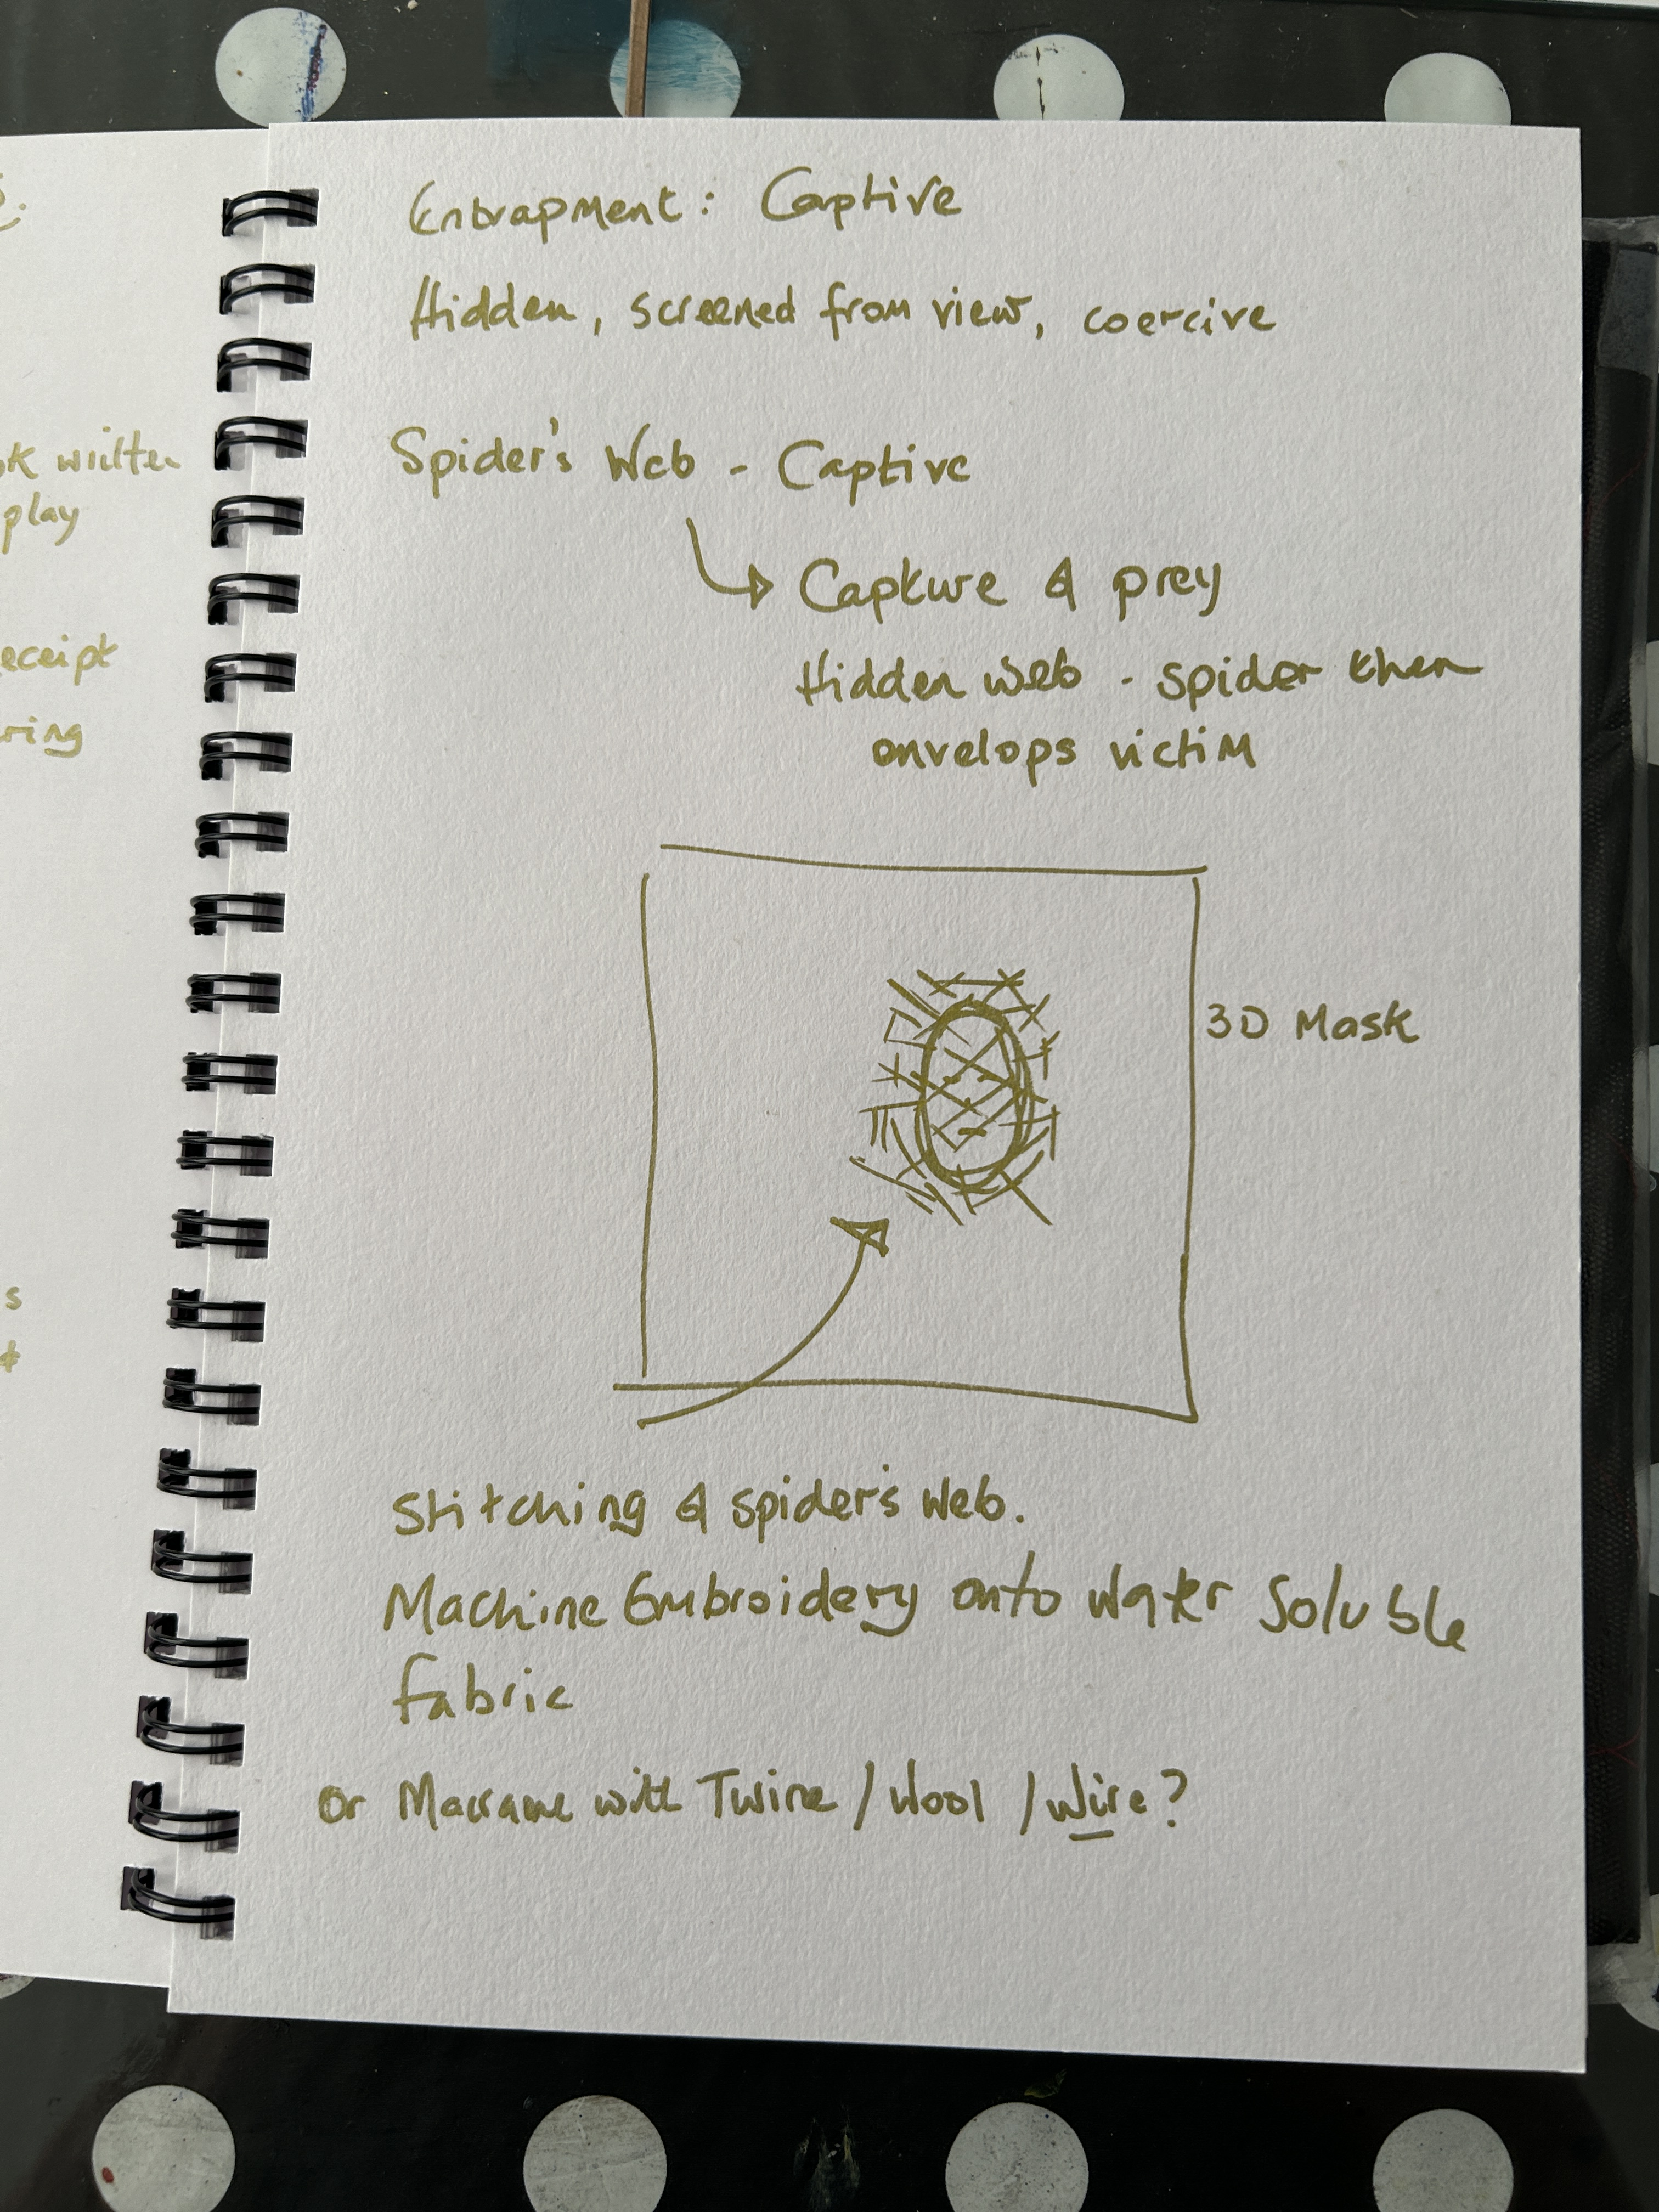 written
play
Entrapment: Captive
Hidden, screened from view, coercive
Spider's Web - Captive
Capture & prey
Hidden web - spider then
envelops victim
3D Mask
Stitching & spider's web.
Machine Embroidery onto Water Soluble
fabric
or Macrame with Twine / Wool / Wire?